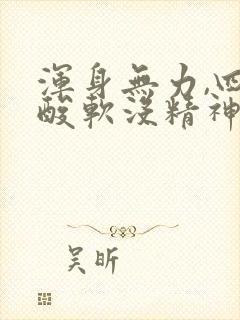 渾身無力,四
酸軟沒精神
吴昕